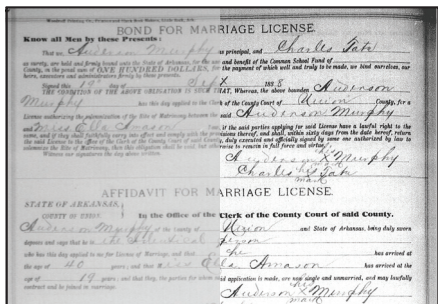 BOND FOR MARRIAGE LICENSE.
Know all Men by these Presents:
That we, Anderson Murphy as principal, and Charles Tate
as surety, are held and firmly bound unto the State of Arkansas, for the use and benefit of the Common School Fund of
County, in the penal sum of ONE HUNDRED DOLLARS, for the payment of which well and truly to be made, we bind ourselves, our
heirs, executors and administrators firmly by these presents.
Signed this 19 day of Sept 189
THE CONDITION OF THE ABOVE OBLIGATION IS SUCH THAT, Whereas, the above bounden Anderson
Murphy has this day applied to the Clerk of the County Court of Union County, for a
License authorizing the solemnization of the Rite of Matrimony between the said Anderson Murphy
and Miss Ella Amason Now, if the said parties applying for said License have a lawful right to the
same, and if they shall faithfully carry into effect and comply with the provisions thereof, and shall, within sixty days from the date hereof, return
the said License to the office of the Clerk of the County Court of said County, duly executed and officially signed by some one authorized by law to
solemnize the Rite of Matrimony, then this obligation shall be void, but otherwise to remain in full force and virtue.
Witness our signatures the day above written.
his
Anderson X Murphy
mark
Charles X Tate
mark
AFFIDAVIT FOR MARRIAGE LICENSE.
STATE OF ARKANSAS,
COUNTY OF UNION. In the Office of the Clerk of the County Court of said County.
Anderson Murphy of the County of Union and State of Arkansas, being duly sworn
deposes and says that he is the identical person
who has this day applied to me for License of Marriage, and that he has arrived at
the age of 40 years; and that Miss Ella Amason has arrived at the
age of 19 years; and that they, the parties for whom said application is made, are now single and unmarried, and may lawfully
contract and be joined in marriage.
his
Anderson X Murphy
mark